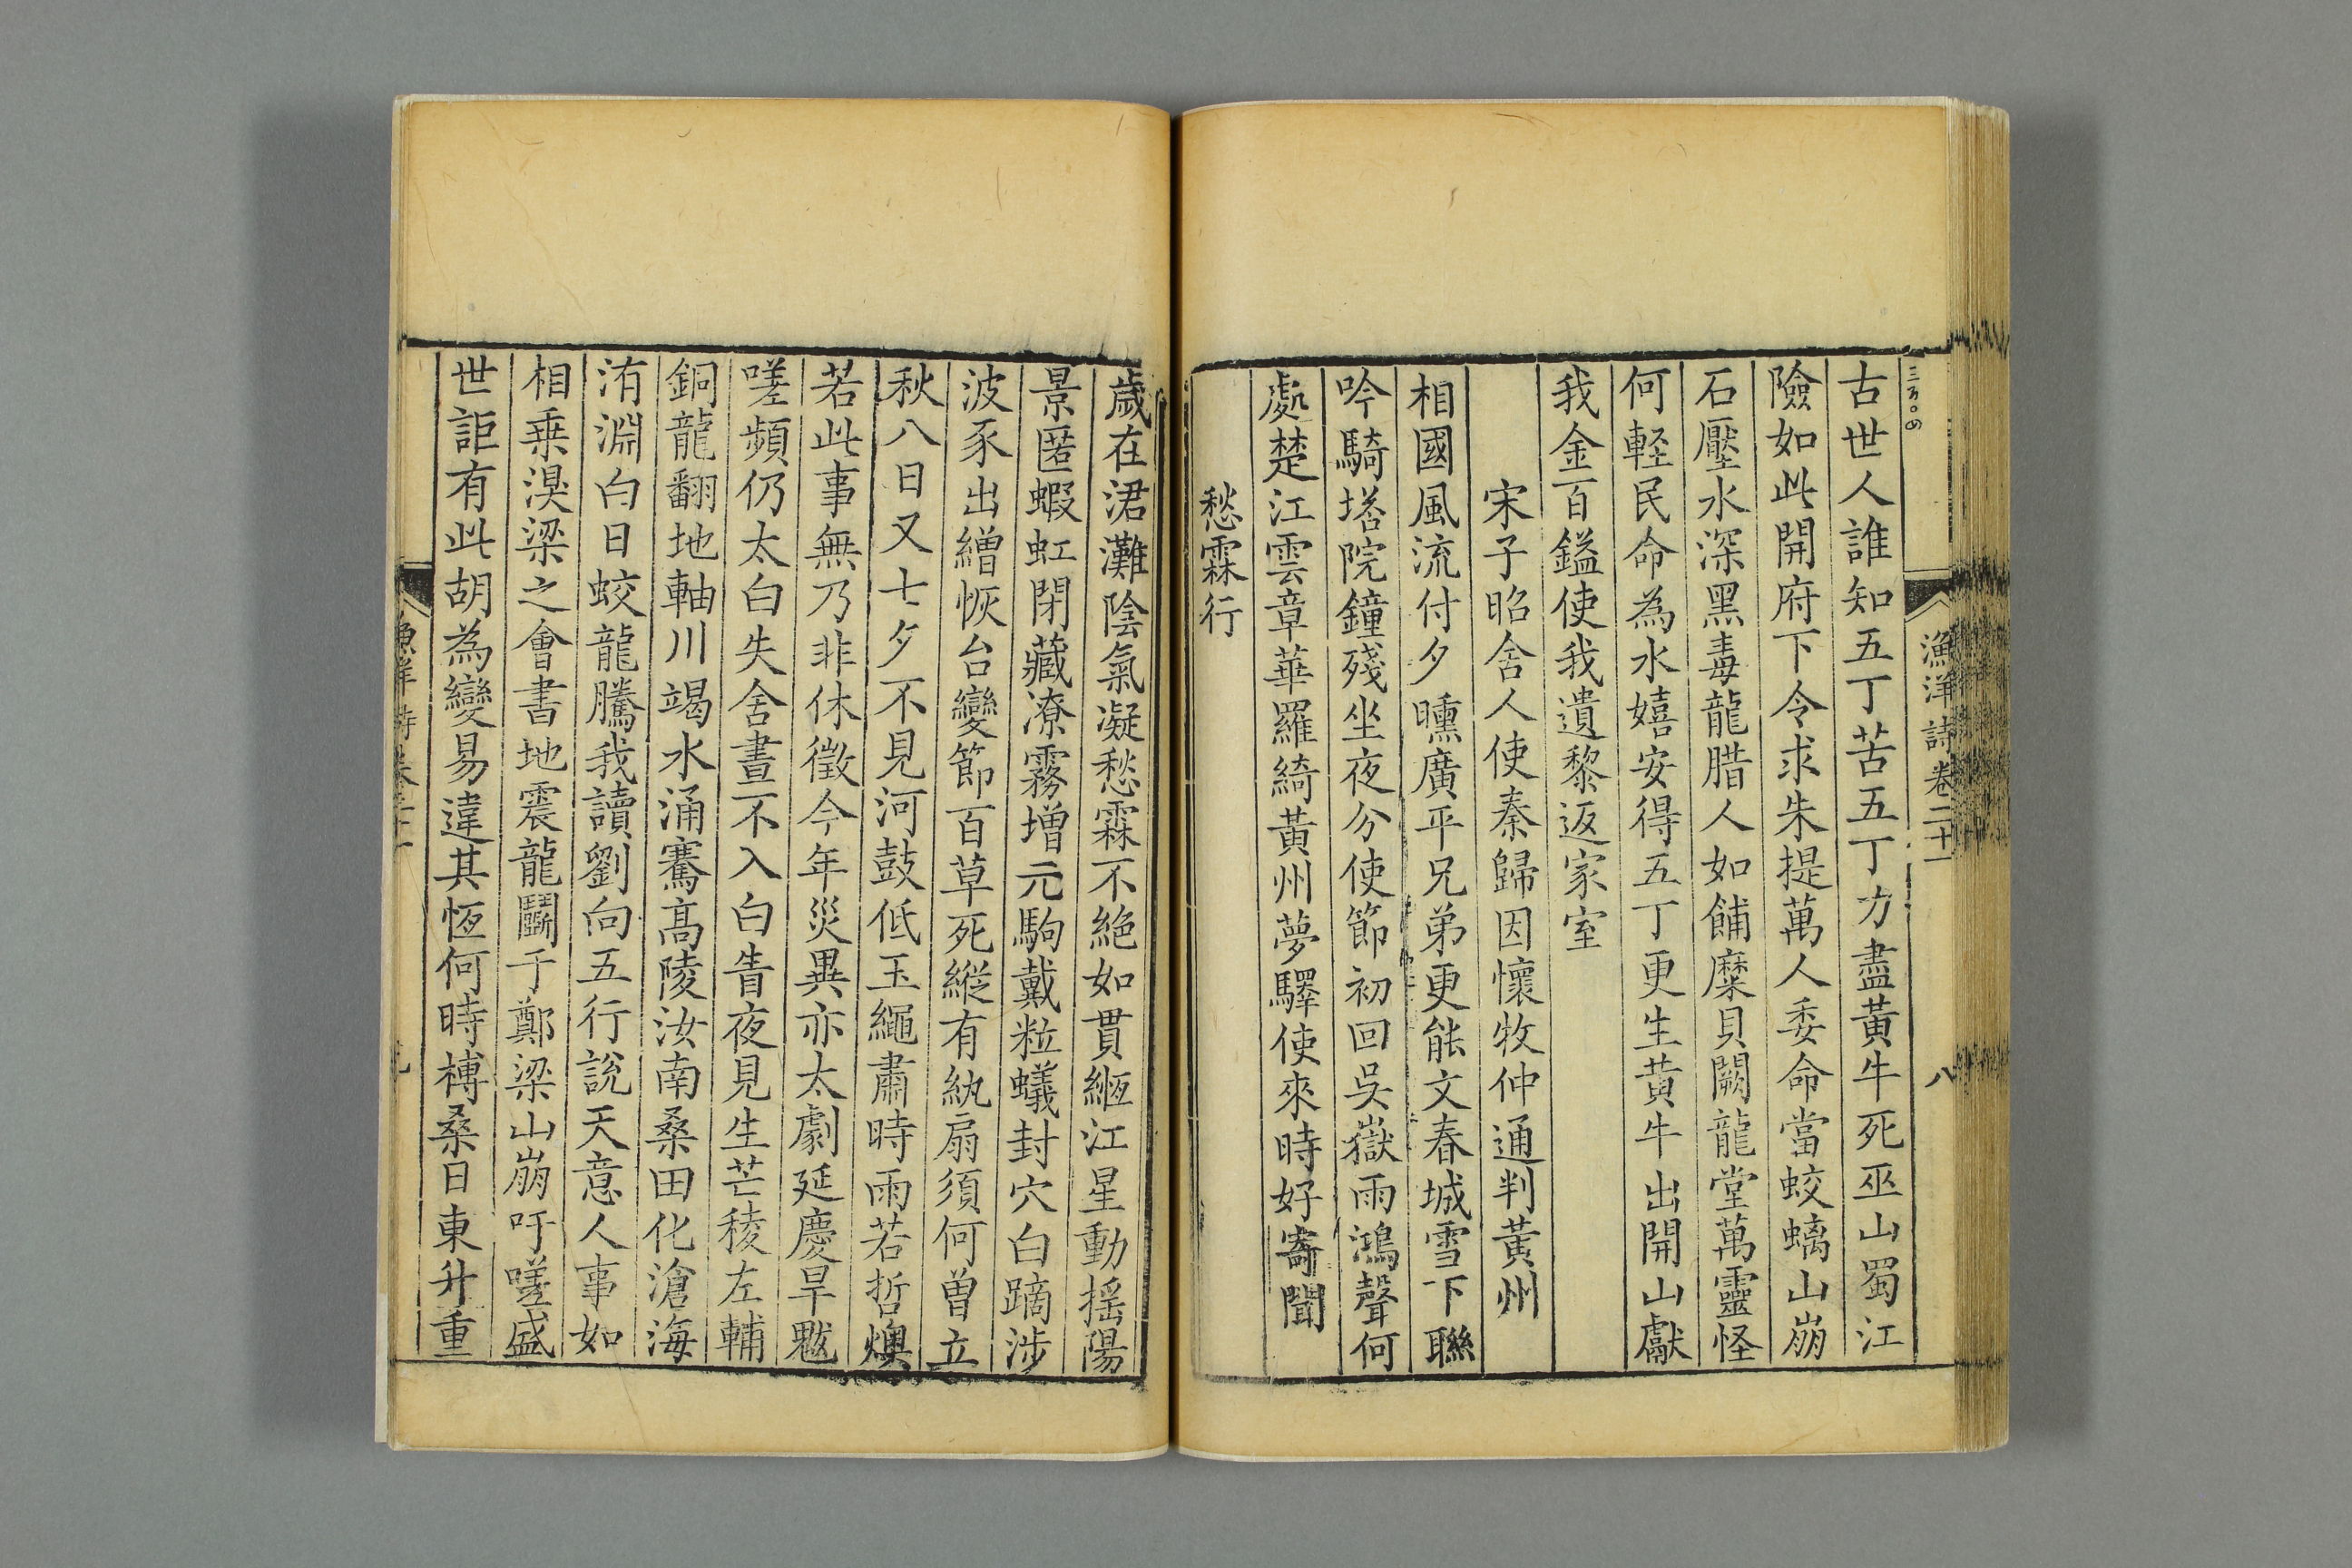 漁洋詩卷二十一
八
古世人誰知五丁苦五丁力盡黃牛死巫山蜀江
險如此開府下令求朱提萬人委命當蛟螭山崩
石壓水深黑毒龍腊人如餔糜貝闕龍堂萬靈怪
何輕民命為水嬉安得五丁更生黃牛出開山獻
我金百鎰使我遺黎返家室
宋子昭舍人使秦歸因懷牧仲通判黃州
相國風流付夕曛廣平兄弟更能文春城雪下聯
吟騎塔院鐘殘坐夜分使節初回吳嶽雨鴻聲何
處楚江雲章華羅綺黃州夢驛使來時好寄聞
愁霖行
歲在涒灘陰氣凝愁霖不絶如貫縆江星動搖陽
景匿蝦虹閉藏潦霧增元駒戴粒蟻封穴白蹢涉
波豕出繒恢台變節百草死縱有紈扇須何曽立
秋八日又七夕不見河鼓低玉繩肅時雨若哲燠
若此事無乃非休徵今年災異亦太劇延慶旱魃
嗟頻仍太白失舍晝不入白眚夜見生芒稜左輔
銅龍翻地軸川竭水涌騫高陵汝南桑田化滄海
洧淵白日蛟龍騰我讀劉向五行說天意人事如
相乗湨梁之會書地震龍鬭于鄭梁山崩吁嗟盛
世詎有此胡為變易違其恆何時榑桑日東升重